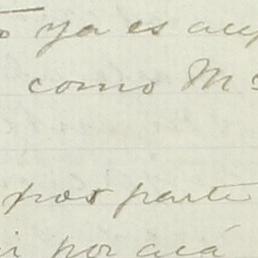 ya es
como M
por parte
por acá